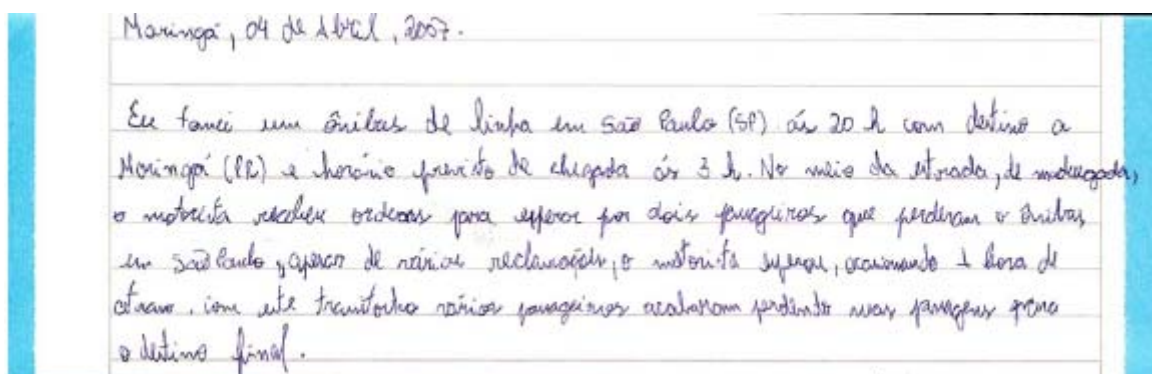 Maringá, 04 de Abril, 2007.
Eu tomei um ônibus de linha em São Paulo (SP) ás 20 h com destino a
Maringá (PR) e horário previsto de chegada ás 3 h. No meio da estrada, de madrugada,
o motorista recebeu ordens para esperar por dois passageiros que perderam o ônibus
em São Paulo, apesar de várias reclamações, o motorista esperou, ocasionando 1 hora de
atraso, com este transtorno vários passageiros acabaram perdendo suas passagens para
o destino final.